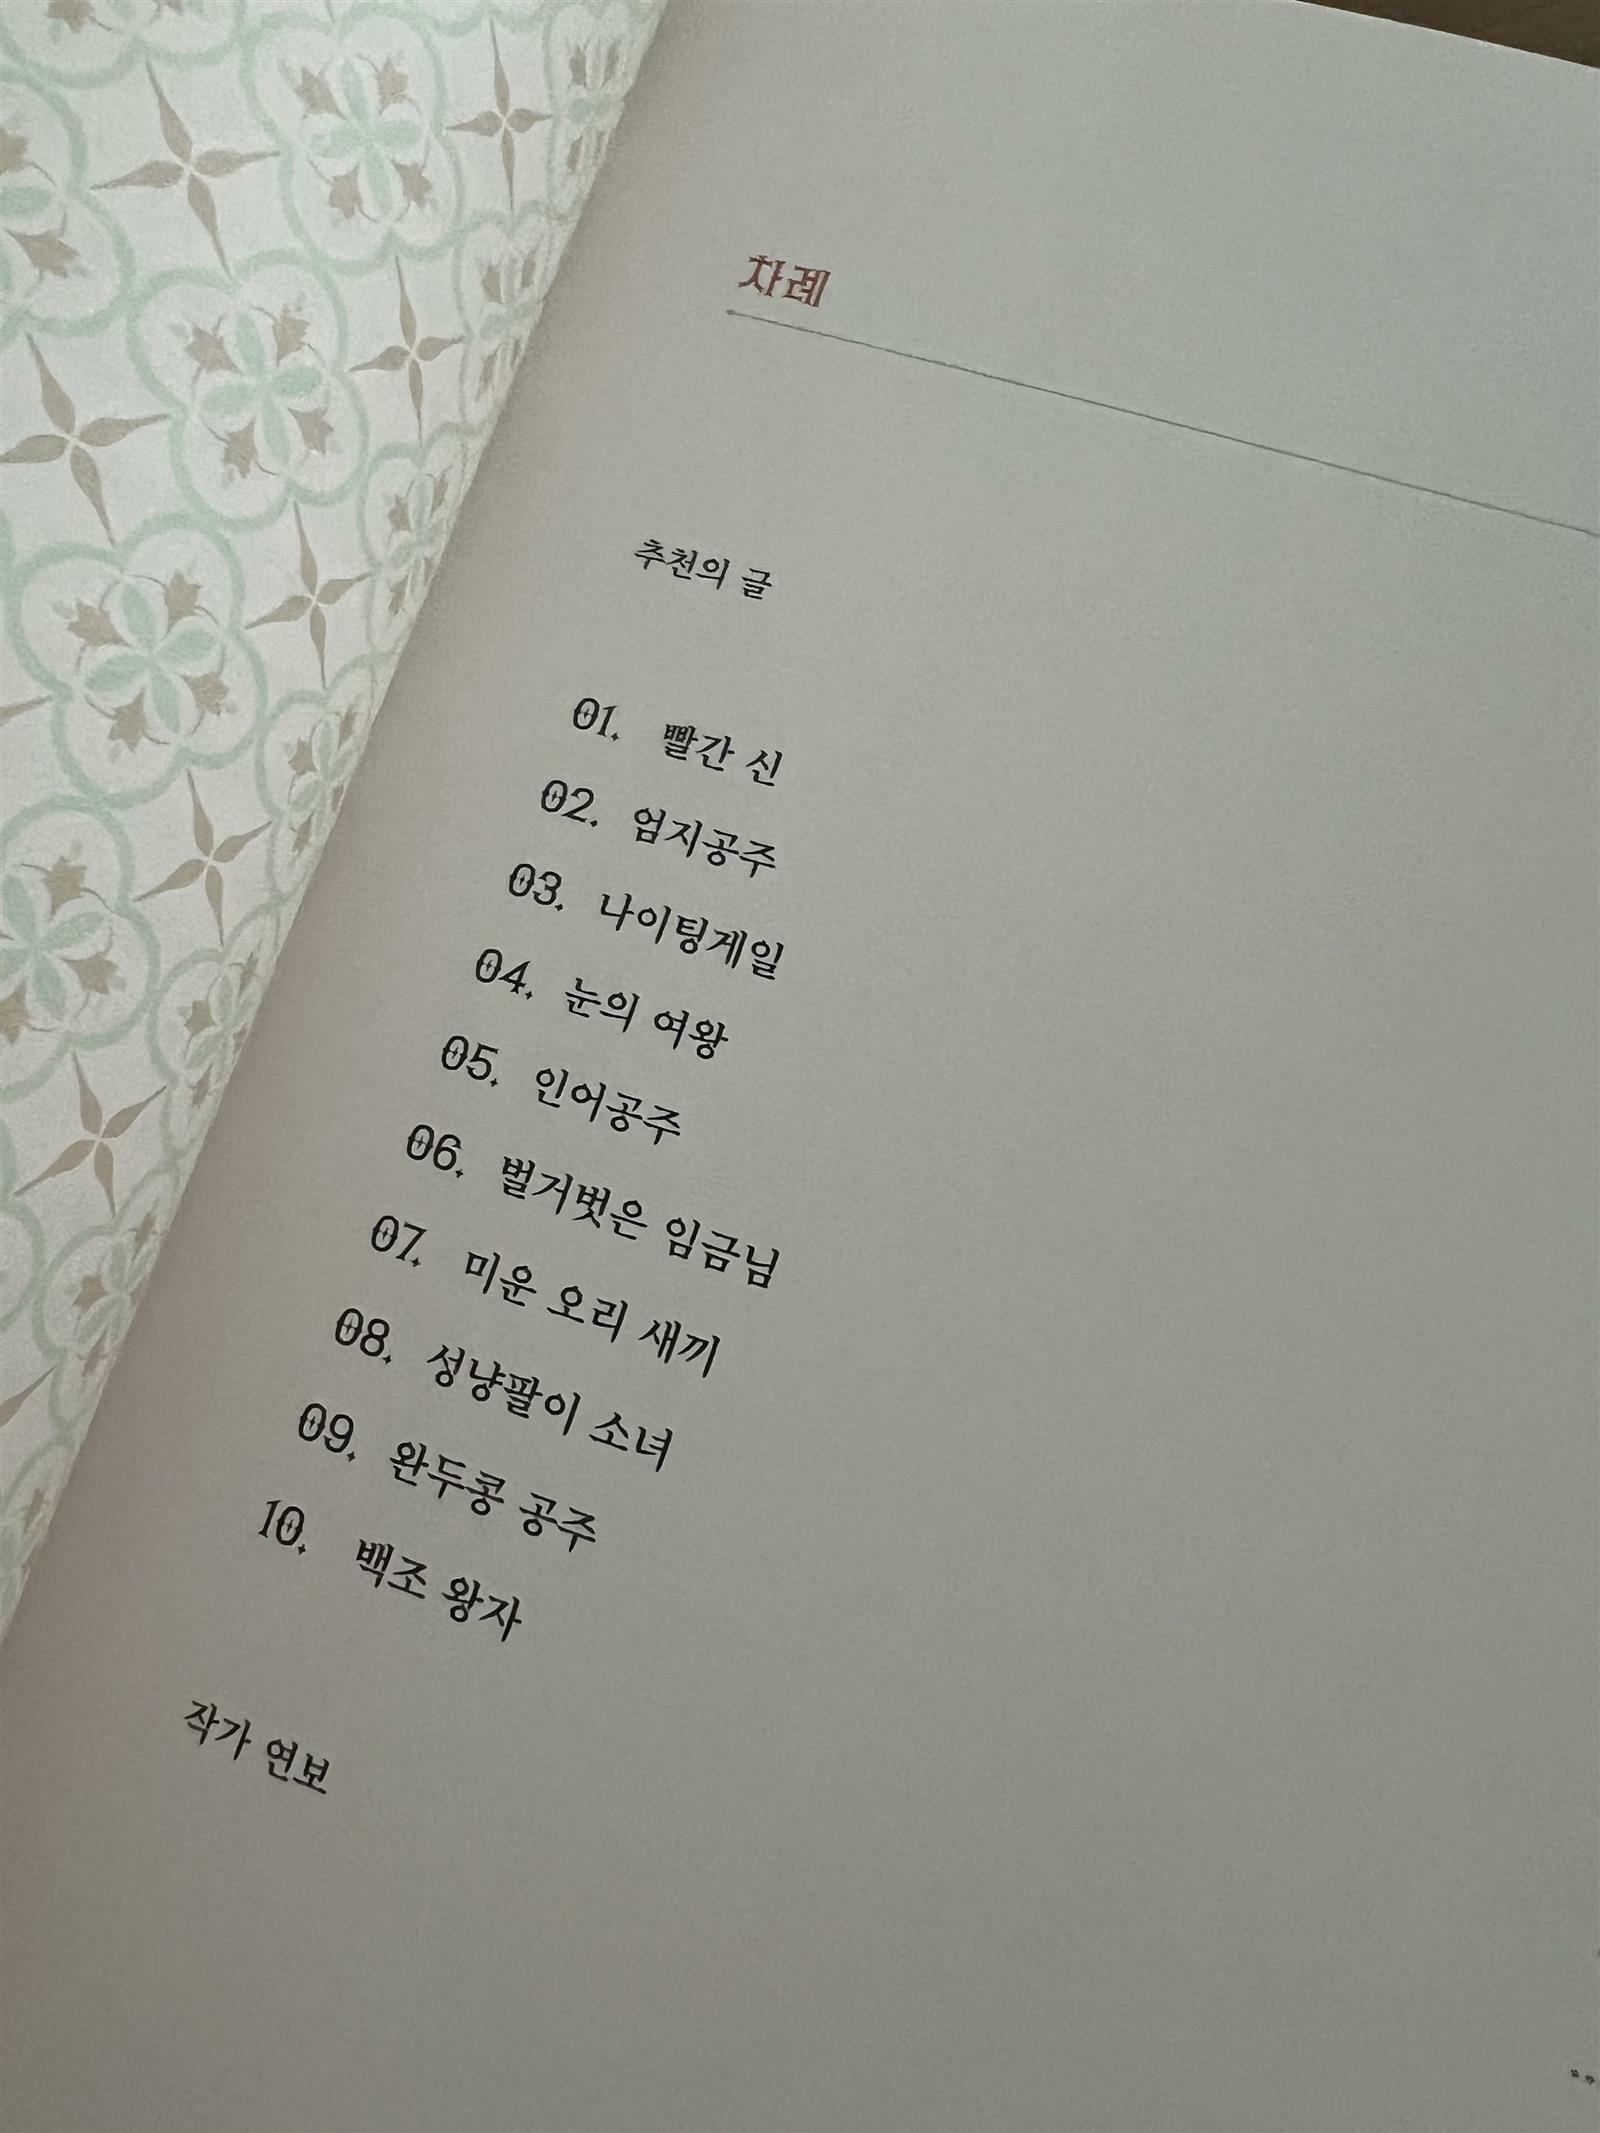 차례
추천의 글
01. 빨간 신
02. 엄지공주
03. 나이팅게일
04. 눈의 여왕
05. 인어공주
06. 벌거벗은 임금님
07. 미운 오리 새끼
08. 성냥팔이 소녀
09. 완두콩 공주
10. 백조 왕자
작가 연보